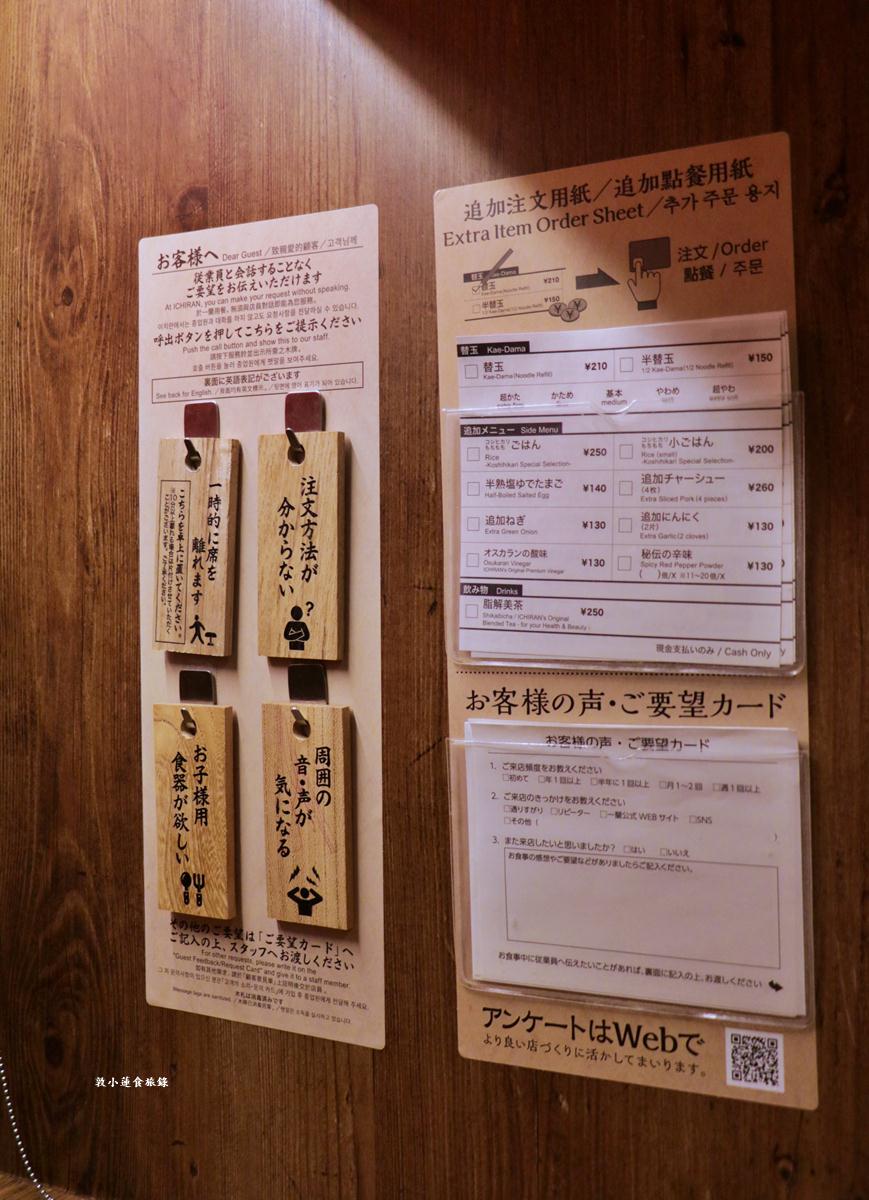 お客様へ Dear Guest／致親愛的顧客／고객님께
従業員と会話することなく
ご要望をお伝えいただけます
At ICHIRAN, you can make your request without speaking.
呼出ボタンを押してこちらをご提示ください
Push the call button and show this to our staff.
裏面に英語表記がございます
See back for English.
一時的に席を
離れます
こちらを卓上に置いてください。
注文方法が
分からない
?
お子様用
食器が欲しい
周囲の
音・声が
気になる
その他のご要望は「ご要望カード」へ
ご記入の上、スタッフへお渡しください
For other requests, please write it on the
"Guest Feedback/Request Card" and give it to a staff member.
木札は消毒済みです
Message tags are sanitized.
追加注文用紙／追加點餐用紙
Extra Item Order Sheet／추가 주문 용지
注文 /Order
點餐 / 주문
替玉 Kae-Dama
替玉 ¥210
Kae-Dama(Noodle Refill)
半替玉 ¥150
1/2 Kae-Dama(1/2 Noodle Refill)
超かた かため 基本 やわめ 超やわ
medium
追加メニュー Side Menu
コシヒカリ もちもち ごはん ¥250
Rice
-Koshihikari Special Selection-
コシヒカリ もちもち 小ごはん ¥200
Rice (small)
-Koshihikari Special Selection-
半熟塩ゆでたまご ¥140
Half-Boiled Salted Egg
追加チャーシュー ¥260
(4枚)
Extra Sliced Pork (4 pieces)
追加ねぎ ¥130
Extra Green Onion
追加にんにく ¥130
(2片)
Extra Garlic (2 cloves)
オスカランの酸味 ¥130
Osukaran Vinegar
ICHIRAN's Original Premium Vinegar
秘伝の辛味 ¥130
Spicy Red Pepper Powder
( )倍/X ※11～20倍/X
飲み物 Drinks
脂解美茶 ¥250
Shikaibicha / ICHIRAN's Original
Blended Tea - for your Health & Beauty -
現金支払いのみ / Cash Only
お客様の声・ご要望カード
お客様の声・ご要望カード
1. ご来店頻度をお教えください
□初めて □年1回以上 □半年に1回以上 □月1～2回 □週1回以上
2. ご来店のきっかけをお教えください
□通りすがり □リピーター □一蘭公式WEBサイト □SNS
□その他（ ）
3. また来店したいと思いましたか？ □はい □いいえ
お食事の感想やご要望などがありましたらご記入ください。
お食事中に従業員へ伝えたいことがあれば、裏面に記入の上、お渡しください
アンケートはWebで
より良い店づくりに活かしてまいります。
敦小蓮食旅錄